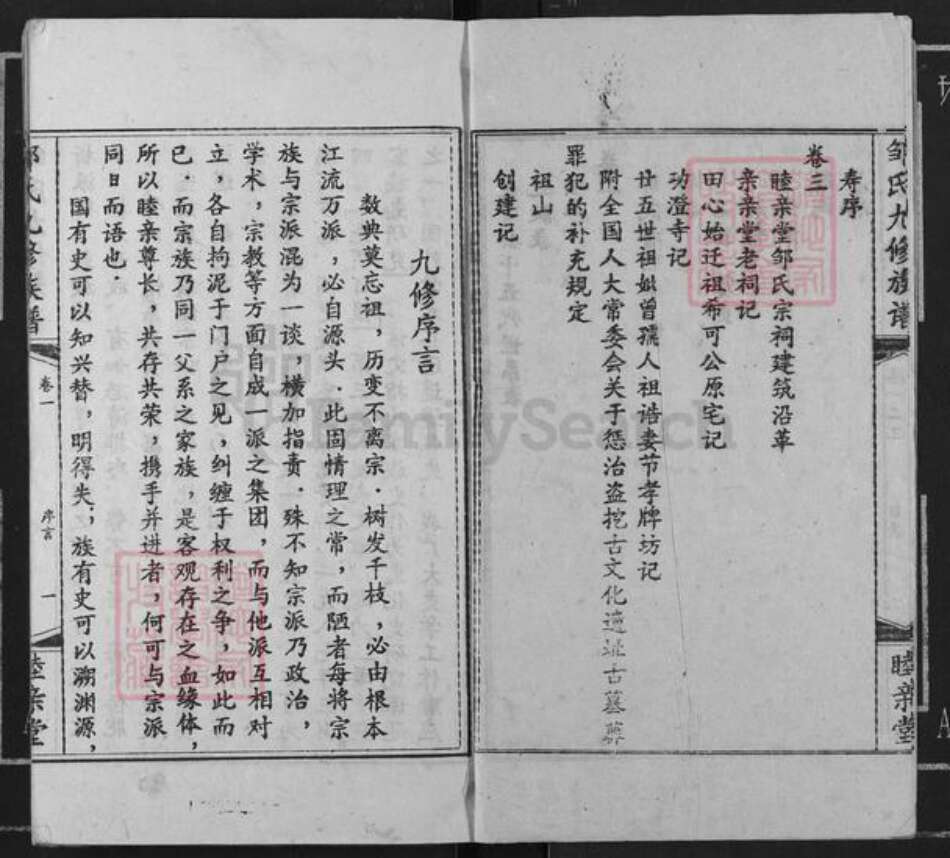 邹氏九修族谱
睦亲堂
寿序
卷三
睦亲堂邹氏宗祠建筑沿革
亲亲堂老祠记
田心始迁祖希可公原宅记
功澄寺记
廿五世祖妣曾孺人祖诰妻节孝牌坊记
附全国人大常委会关于惩治盗挖古文化遗址古墓葬
罪犯的补充规定
祖山
创建记
九修序言
数典莫忘祖，历变不离宗．树发千枝，必由根本
江流万派，必自源头．此固情理之常，而陋者每将宗
族与宗派混为一谈，横加指责．殊不知宗派乃政治，
学术，宗教等方面自成一派之集团，而与他派互相对
立，各自拘泥于门户之见，纠缠于权利之争，如此而
已．而宗族乃同一父系之家族，是客观存在之血缘体，
所以睦亲尊长，共存共荣，携手并进者，何可与宗派
同日而语也．
国有史可以知兴替，明得失；族有史可以溯渊源，
氏九修族谱
卷一
序言
一
睦亲堂
FamilySearch